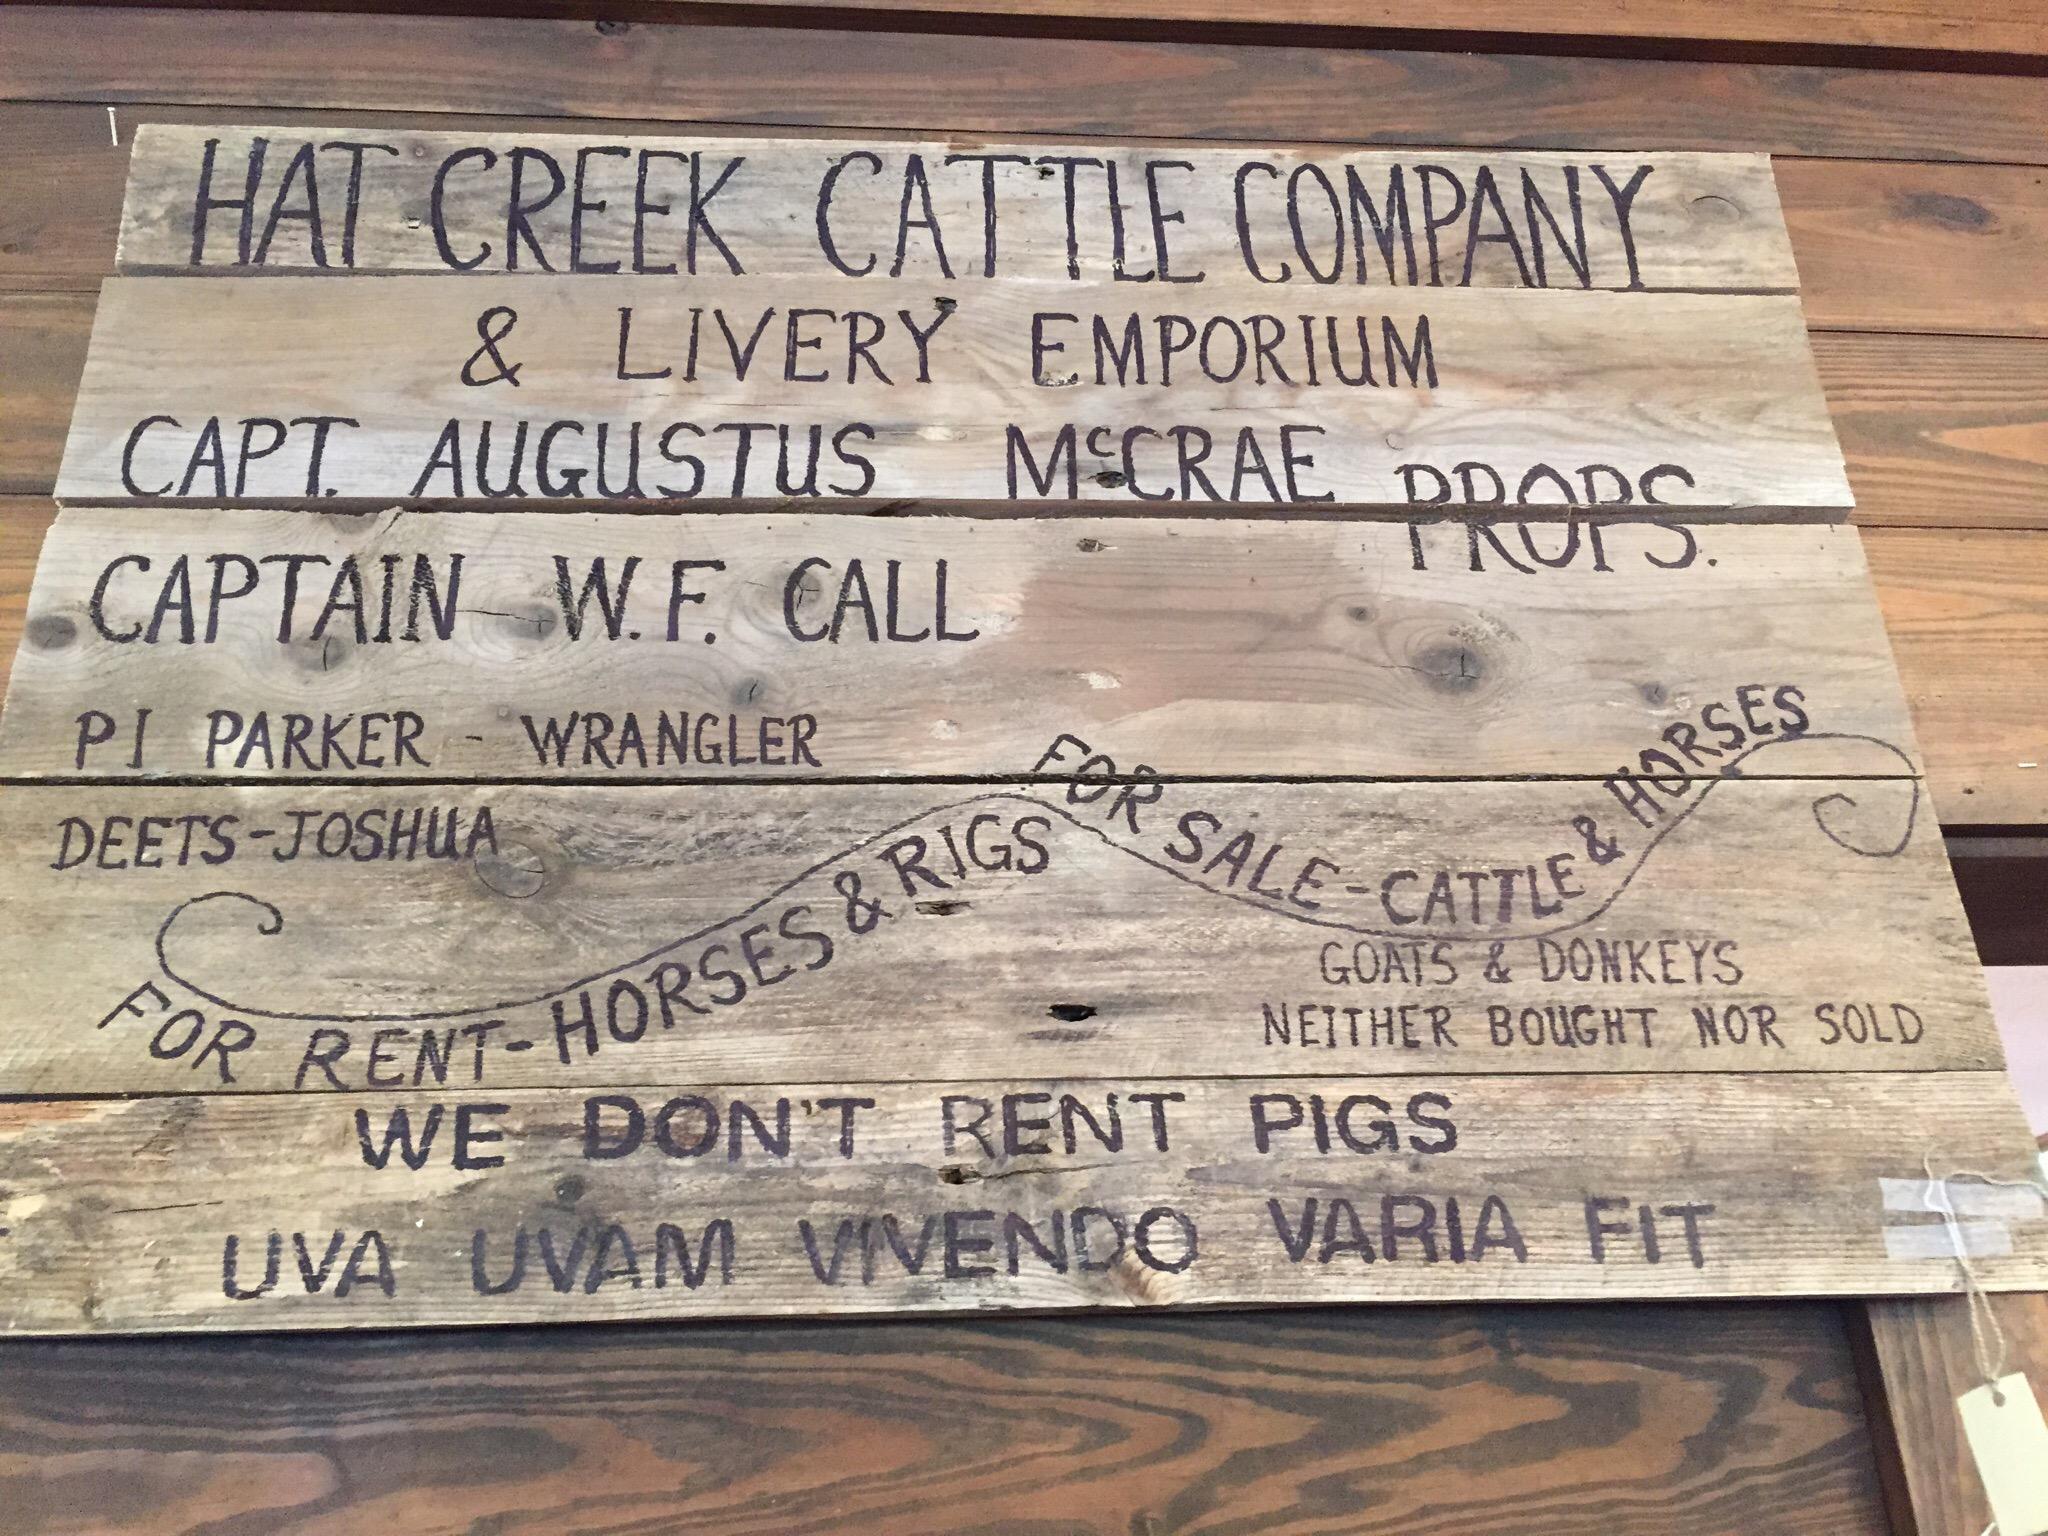 HAT CREEK CATTLE COMPANY
& LIVERY EMPORIUM
CAPT. AUGUSTUS McCRAE
PROPS.
CAPTAIN W. F. CALL
P I PARKER - WRANGLER
DEETS-JOSHUA
FOR RENT-HORSES & RIGS
FOR SALE-CATTLE & HORSES
GOATS & DONKEYS
NEITHER BOUGHT NOR SOLD
WE DON'T RENT PIGS
UVA UVAM VIVENDO VARIA FIT